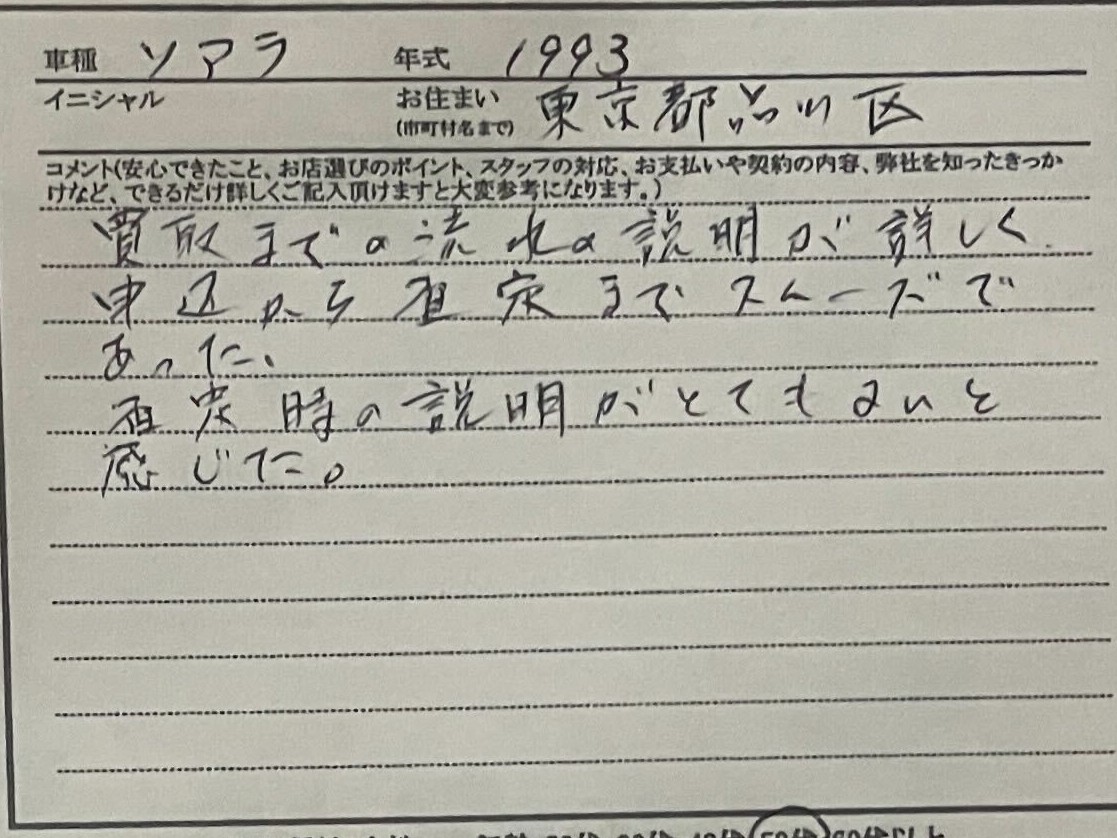 車種 ソマラ 年式 1993
イニシャル お住まい 東京都品川区
(市町村名まで)
コメント(安心できたこと、お店選びのポイント、スタッフの対応、お支払いや契約の内容、弊社を知ったきっか
けなど、できるだけ詳しくご記入頂けますと大変参考になります。)
買取までの流れの説明が詳しく
申込から査定までスムーズで
あった、
査定時の説明がとてもよいと
感じた。
50代 60代以上